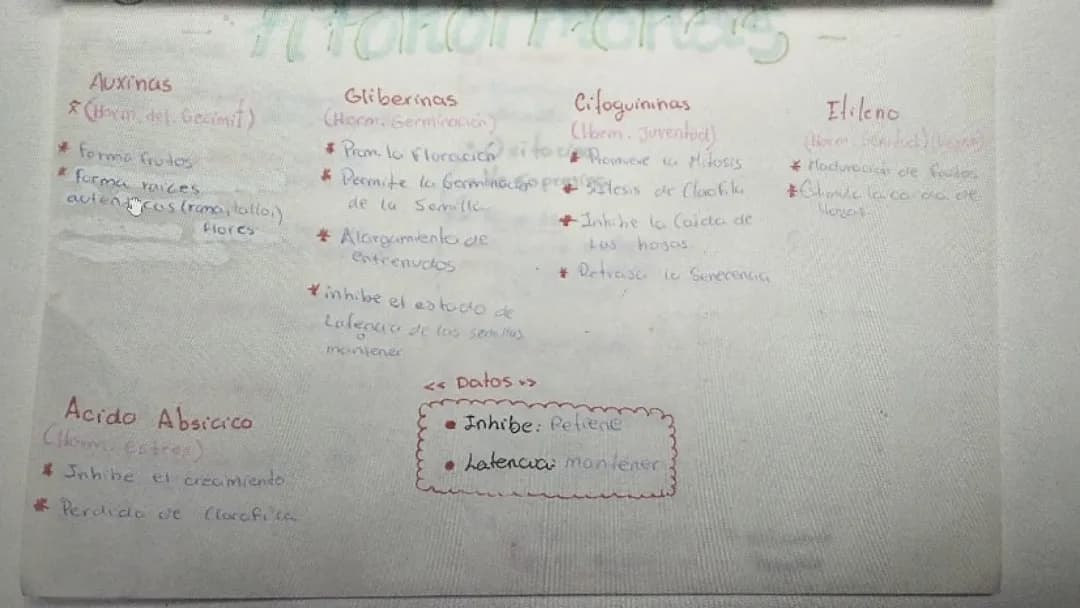 Fitohormonas
Auxinas
* (Horm. del. Crecimit)
* forma frutos
* forma raices
(rama, tallo,)
flores
Gliberinas
(Horm. Germinación)
* Prom. la Floración
* Permite la Germinacio
de la Semilla
* Alargamiento de
entrenudos
* inhibe el estado de
Latencia de las semillas
mantener
Citoquininas
(Horm. Juventud)
* Promueve la Mitosis
* de Clorofila
* Inhibe la Caida de
Las hogas
* Detrasa la Senecencia
Etileno
* Maduración de frutos
* la caida de
Hogas
Acido Absicico
(Horm. estres)
* Inhibe el crecimiento
* Perdida de Clorofila
<< Datos >>
• Inhibe: Retiene
• Latencia: mantener